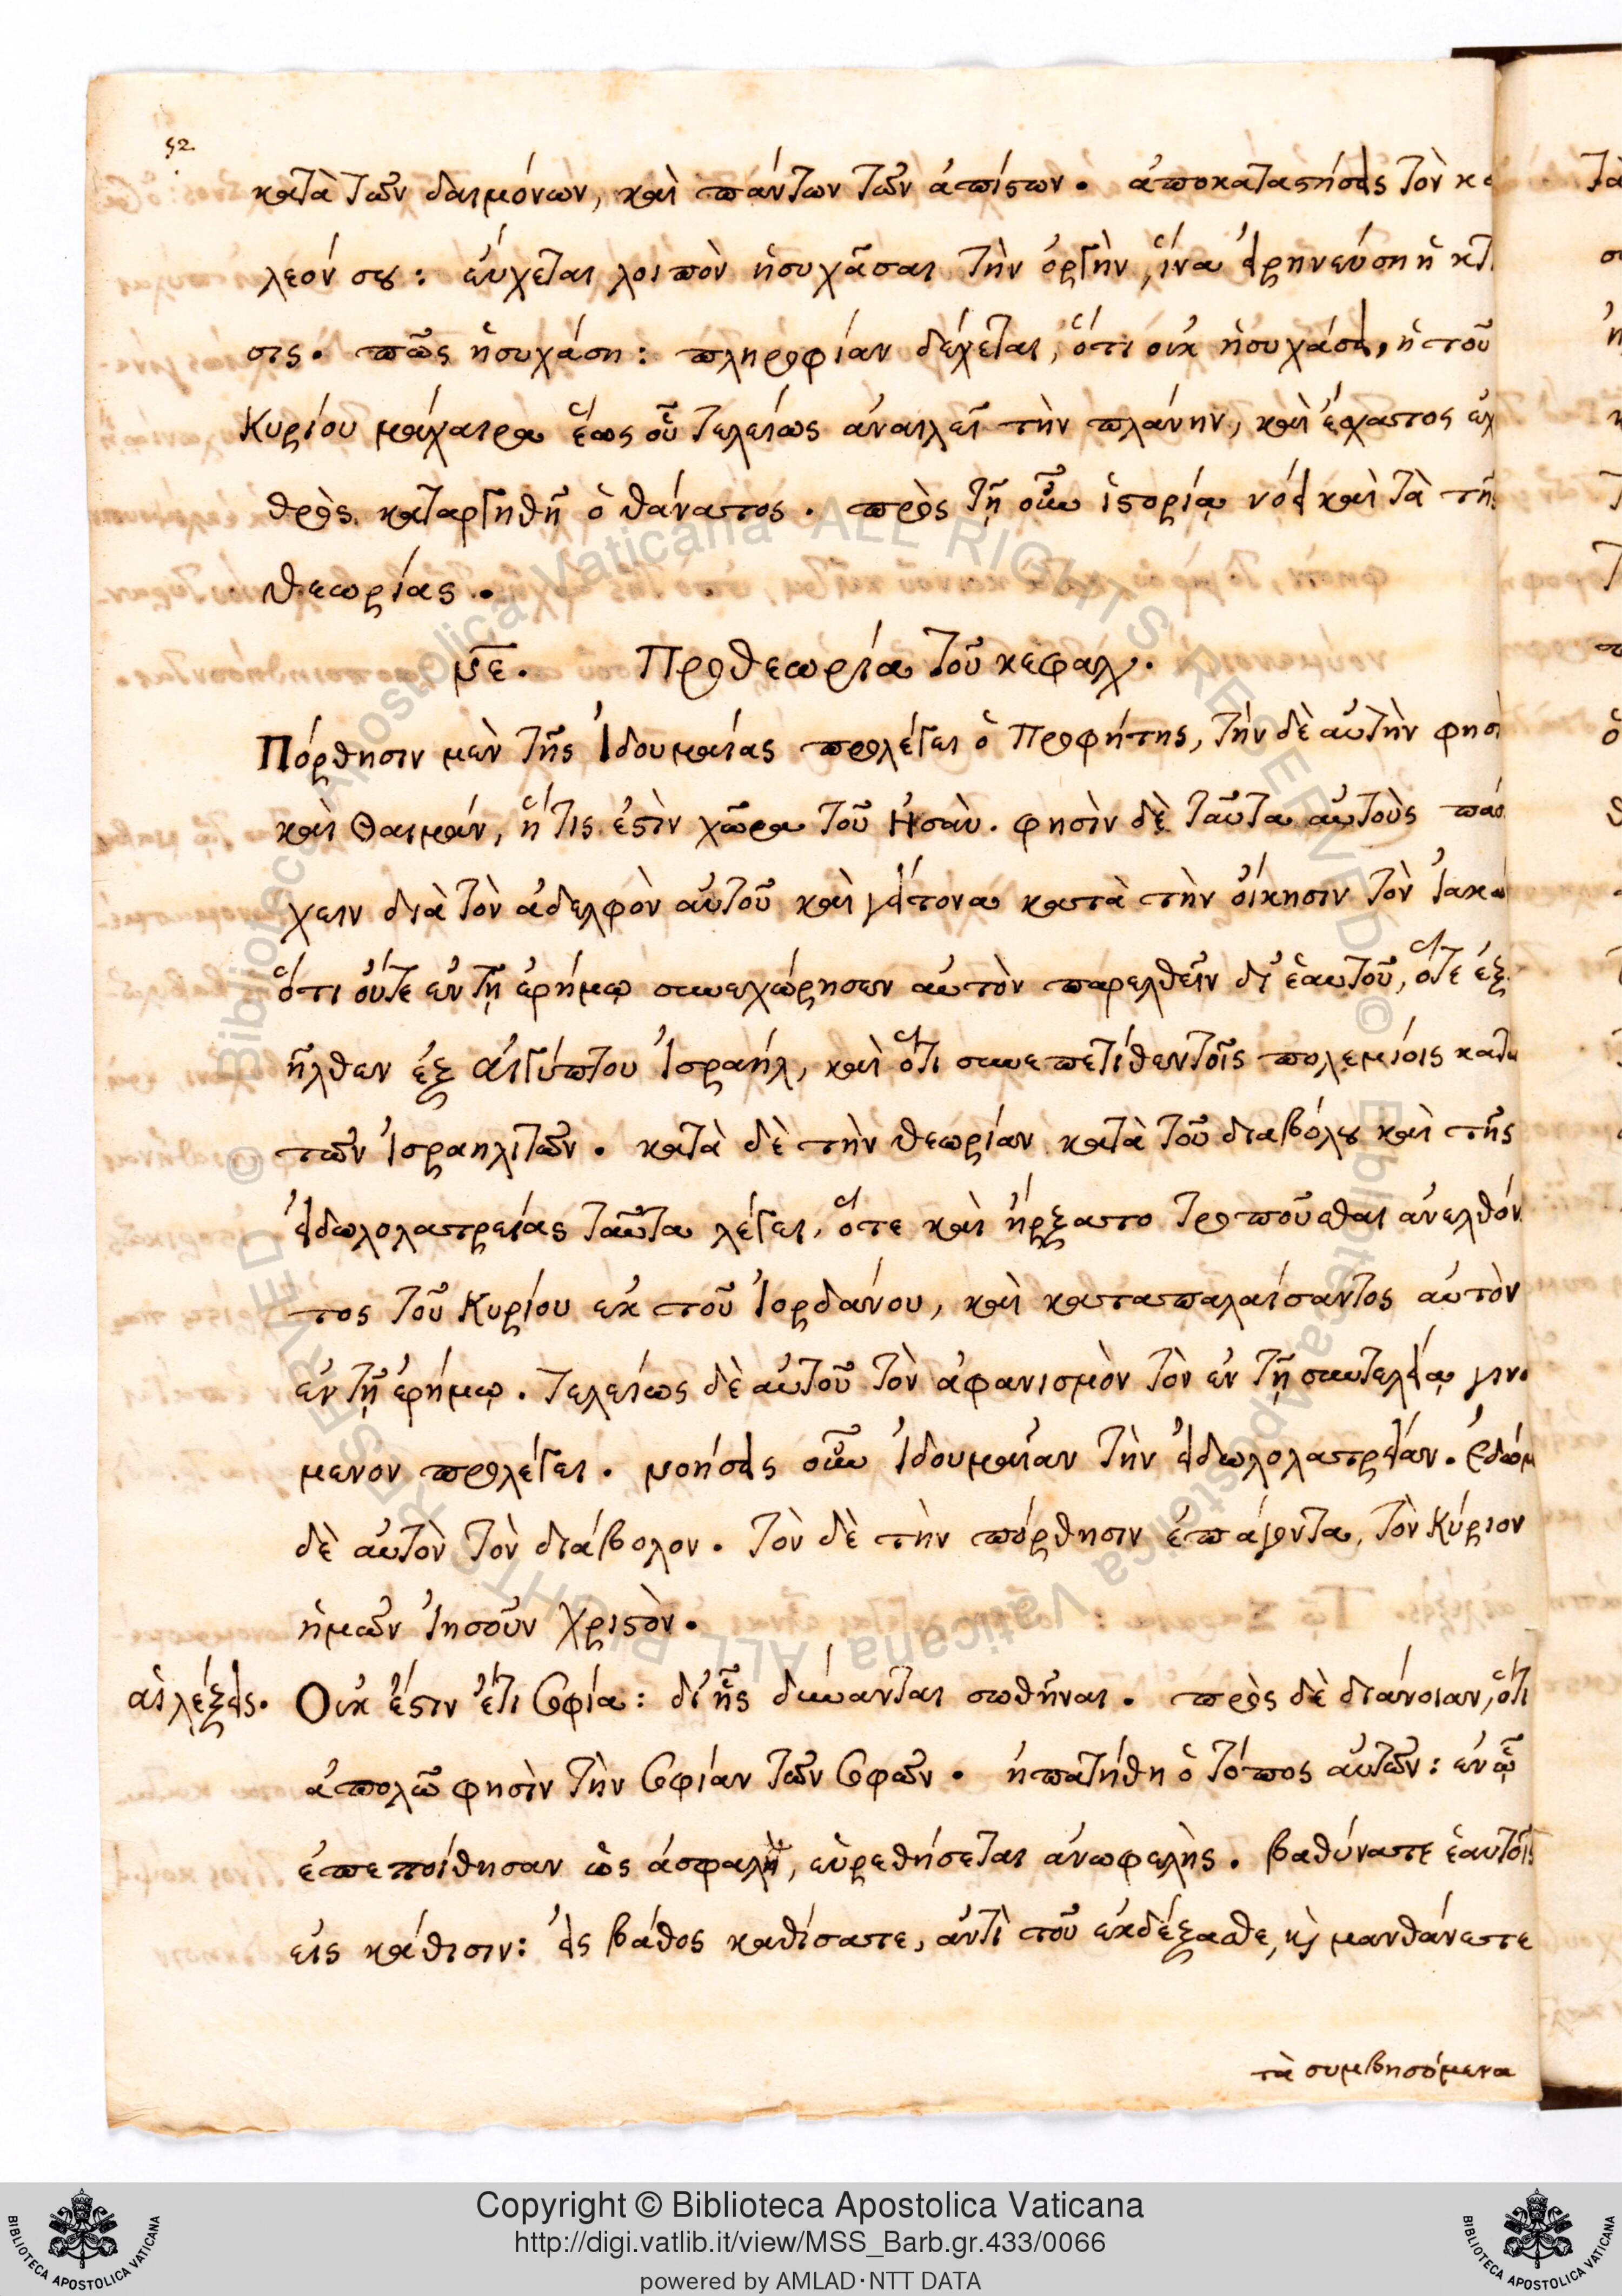 52
κατὰ τῶν δαιμόνων, καὶ πάντων τῶν ἀπίστων. ἀποκαταστήσεις τὸν κ
λεόν σου: εὔχεται λοιπὸν ἡσυχᾶσαι τὴν ὀργὴν, ἵνα εἰρηνεύσῃ ἡ κτ
σις. πῶς ἡσυχάσῃ: πληροφίαν δέχεται, ὅτι οὐκ ἡσυχάσει, ἡ τοῦ
Κυρίου μάχαιρα ἕως οὗ τελείως ἀναιλεῖ τὴν πλάνην, καὶ ἔσχατος ἐχ
θρὸς καταργηθῇ ὁ θάνατος. πρὸς τῇ οὖν ἱστορίᾳ νόει καὶ τὰ τῆς
θεωρίας.
με. Προθεωρία τοῦ κεφαλ.
Πόρθησιν μὲν τῆς Ἰδουμαίας προλέγει ὁ Προφήτης, τὴν δὲ αὐτὴν φησὶ
καὶ Θαιμάν, ἥτις ἐστὶν χῶρα τοῦ Ἠσαὺ. φησὶν δὲ ταῦτα αὐτοὺς πάσ
χειν διὰ τὸν ἀδελφὸν αὐτοῦ καὶ γείτονα κατὰ τὴν οἴκησιν τὸν Ἰακω
ὅτι οὔτε ἐν τῇ ἐρήμῳ συνεχώρησεν αὐτὸν παρελθεῖν δι' ἑαυτοῦ, ὅτε ἐξ
ῆλθεν ἐξ Αἰγύπτου Ἰσραήλ, καὶ ὅτι συνεπετίθεντοῖς πολεμίοις κατα
τῶν Ἰσραηλιτῶν. κατὰ δὲ τὴν θεωρίαν κατὰ τοῦ διαβόλου καὶ τῆς
εἰδωλολατρείας ταῦτα λέγει, ὅτε καὶ ἤρξατο τροποῦσθαι ἀνελθόν
τος τοῦ Κυρίου ἐκ τοῦ Ἰορδάνου, καὶ καταπαλαίσαντος αὐτὸν
ἐν τῇ ἐρήμῳ. τελείως δὲ αὐτοῦ τὸν ἀφανισμὸν τὸν ἐν τῇ συντελείᾳ γινο
μενον προλέγει. νοήσεις οὖν Ἰδουμαίαν τὴν εἰδωλολατρείαν. Ἐδώμ
δὲ αὐτὸν τὸν διάβολον. τὸν δὲ τὴν πόρθησιν ἐπάγοντα, τὸν Κύριον
ἡμῶν Ἰησοῦν Χριστὸν.
αἱ λέξεις. Οὐκ ἔστιν ἔτι σοφία: δι' ἧς δύνανται σωθῆναι. πρὸς δὲ διάνοιαν, ὅτι
ἀπολῶ φησὶν τὴν σοφίαν τῶν σοφῶν. ἠπατήθη ὁ τόπος αὐτῶν: ἐν ᾧ
ἐπεποίθησαν ὡς ἀσφαλῆ, εὑρεθήσεται ἀνωφελὴς. βαθύνατε ἑαυτοῖς
εἰς κάθισιν: εἰς βάθος καθίσατε, ἀντὶ τοῦ ἐκδέξασθε, κὶ μανθάνετε
τὰ συμβησόμενα
Copyright © Biblioteca Apostolica Vaticana
http://digi.vatlib.it/view/MSS_Barb.gr.433/0066
powered by AMLAD·NTT DATA